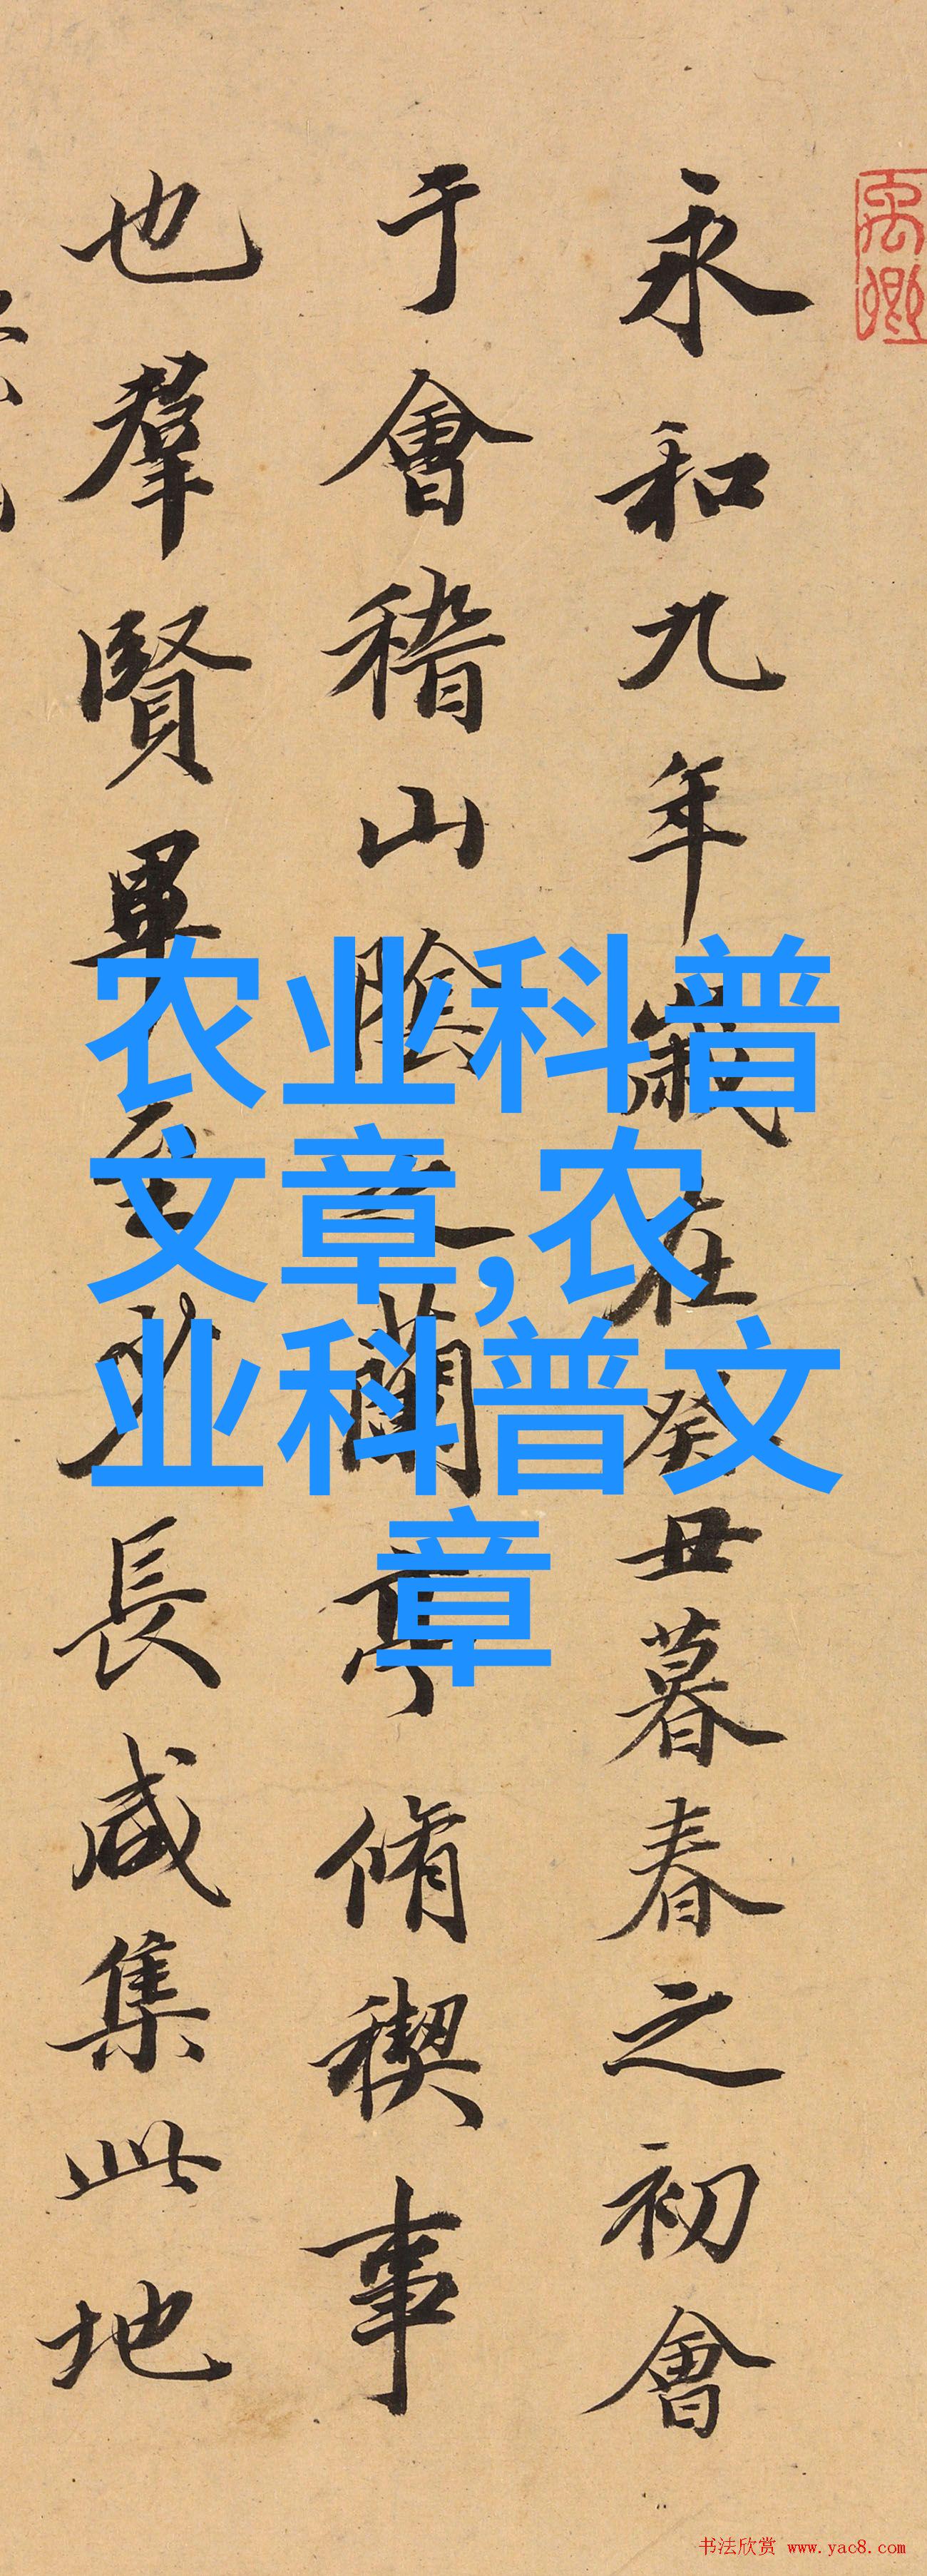 禹卿
永和九年歲在癸丑暮春之初會
于會稽山陰之蘭亭脩稧事
也羣賢畢至少長咸集此地
农业科普
文章,农
业科普文
章
书法欣赏 www.yac8.com